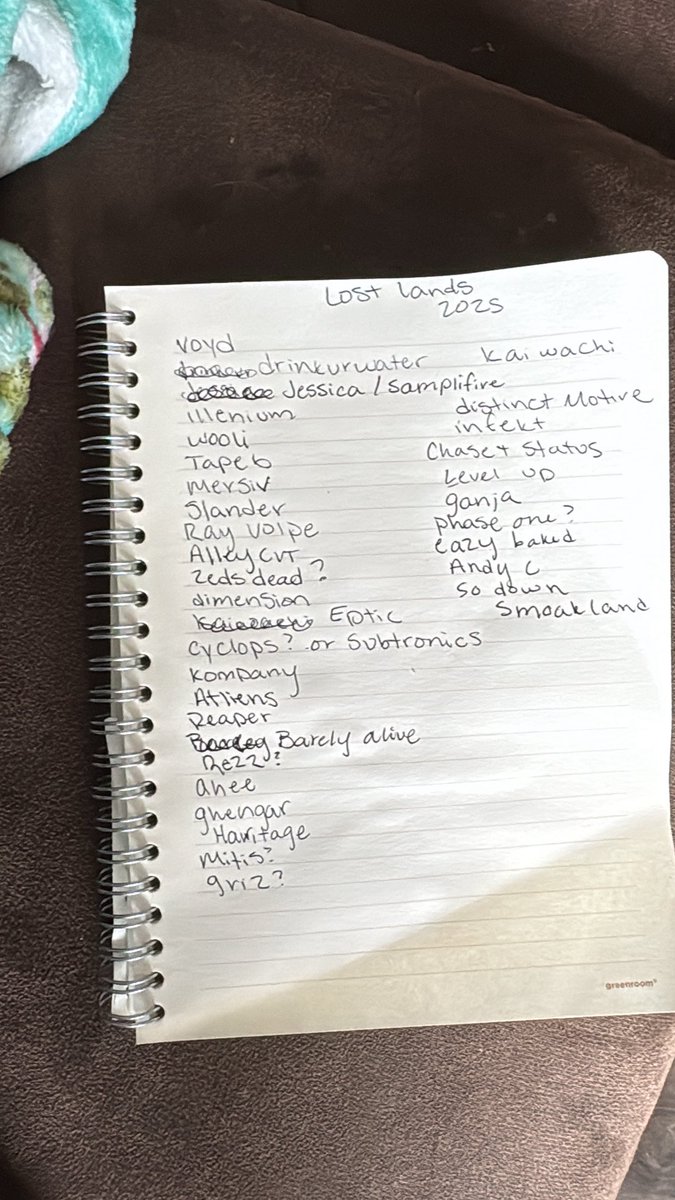 Lost lands
2025
voyd
drinkurwater
Kai wachi
Jessica / Samplifire
illenium
distinct Motive
wooli
infekt
Tape b
Chase + Status
Mersiv
Level UP
Slander
ganja
Ray Volpe
phase one?
Alleycvt
eazy baked
Zeds dead?
Andy C
dimension
So down
Eptic
Smoakland
Cyclops? or Subtronics
Kompany
Atliens
Reaper
Barely alive
Rezz?
ahee
ghengar
Haritage
Mitis?
griz?
greenroom